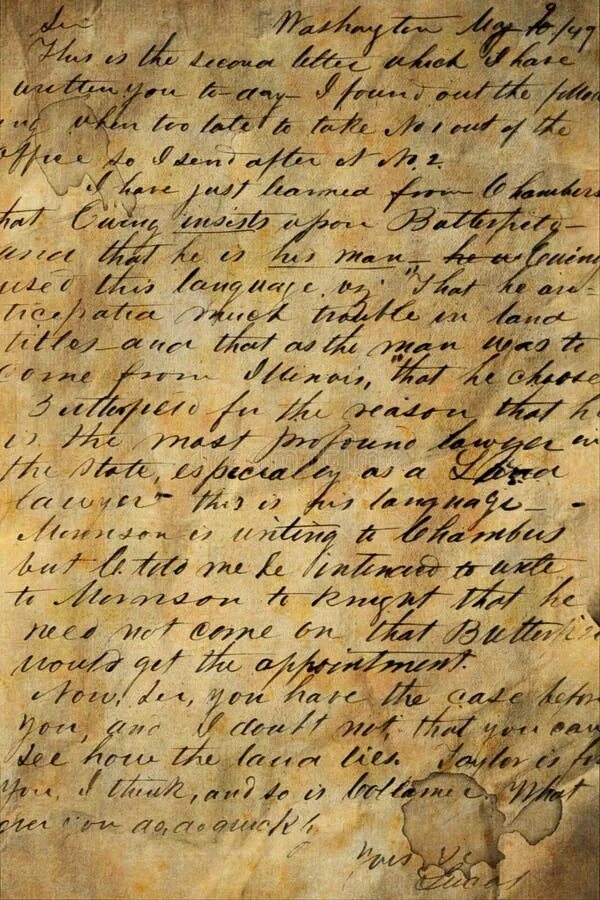 Sir Washington May 10/49
This is the second letter which I have
written you to-day - I found out the follow
ing when too late to take No 1 out of the
office so I send after it No. 2.
I have just learned from Chambers
hat Ewing insists upon Butterfield -
and that he is his man - he Ewing
used this language, viz: "That he an-
ticipated much trouble in land
titles - and that as the man was to
come from Illinois, "that he choose
Butterfield for the reason that he
is the most profound lawyer in
the state, especially as a Land
lawyer" this is his language -
Morrison is writing to Chambers
but C. told me he intended to write
to Morrison to knight that he
need not come on that Butterfie
would get the appointment.
Now, Sir, you have the case before
you, and I doubt not, that you can
see how the land lies. Taylor is for
you, I think, and so is Collamer. What
ever you do, do quickly
Yours
Lucas